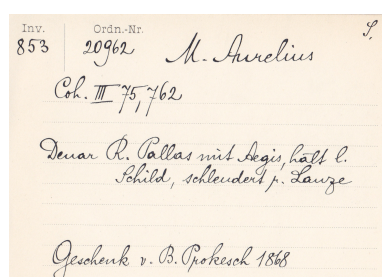 Inv. Ordn.-Nr. S.
853 20962 M. Aurelius
Coh. III 75,762
Denar R. Pallas mit Aegis, hält l.
Schild, schleudert r. Lanze
Geschenk v. B. Prokesch 1868